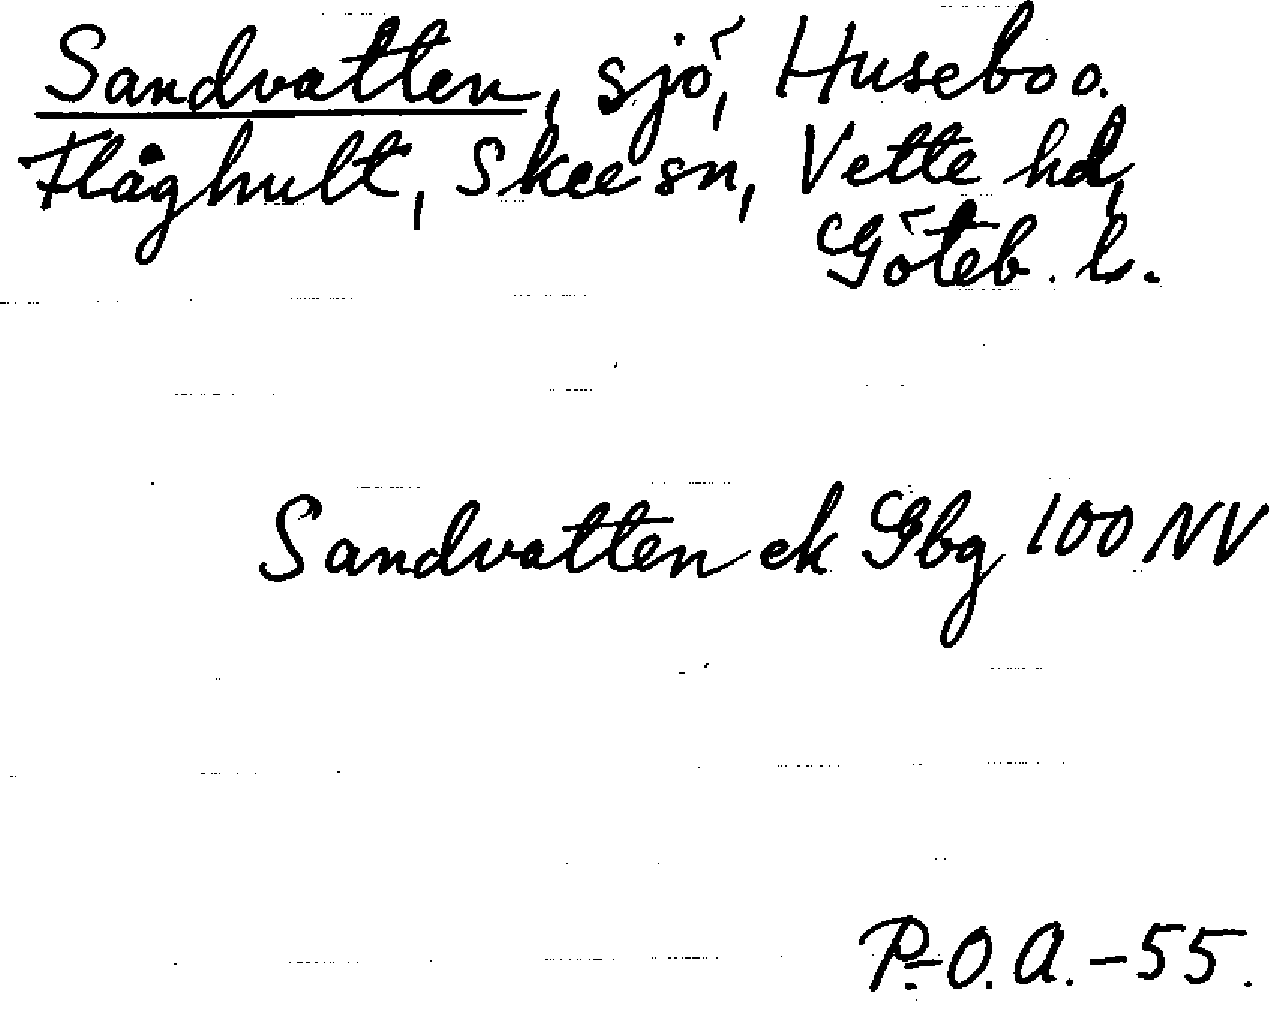 Sandvatten, sjö, Husebo o.
Flåghult, Skee sn, Vette hd,
Göteb. l.
Sandvatten ek Gbg 100 NV
P.-O. A. -55.